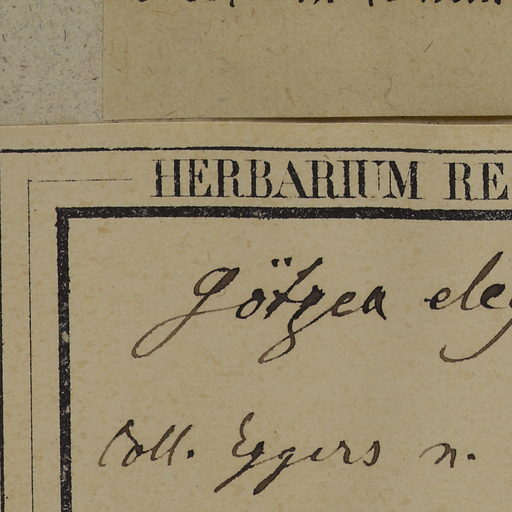 HERBARIUM RE
Götzea eleg
Coll. Eggers n.